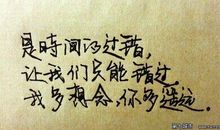 是時间的过错，
让我们只能错过。
我多想念，你多遥远。